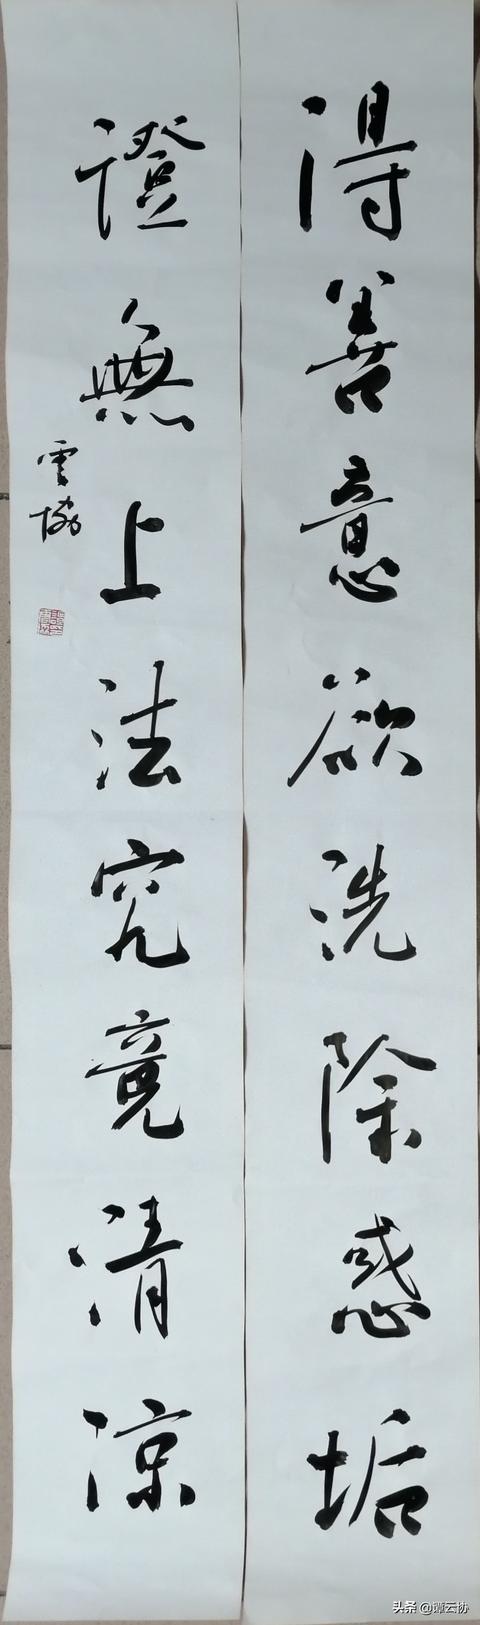 得善意欲洗除惑垢
證無上法究竟清涼
雲協
头条 @谭云协